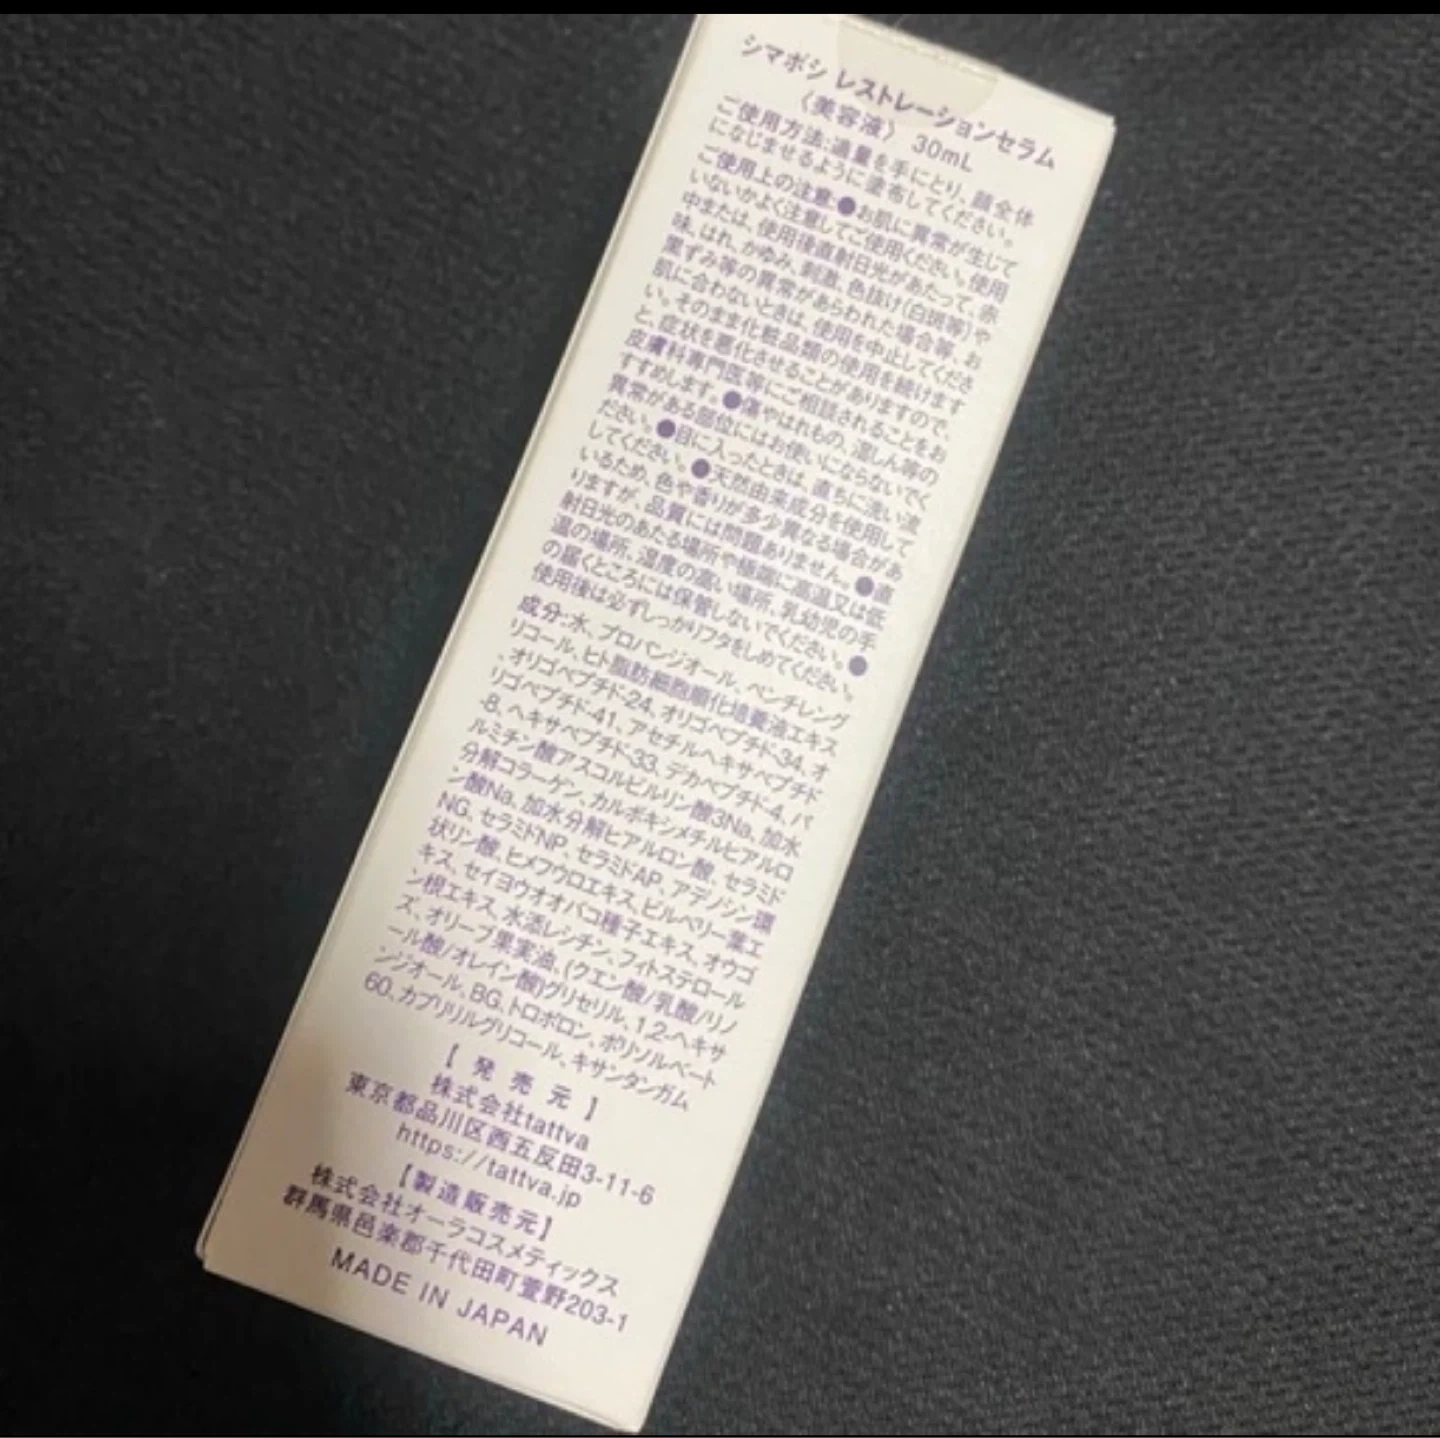 シマボシ レストレーションセラム
〈美容液〉 30mL
ご使用方法:適量を手にとり、顔全体
になじませるように塗布してください。
ご使用上の注意:●お肌に異常が生じて
いないかよく注意してご使用ください。使用
中または、使用後直射日光があたって、赤
味、はれ、かゆみ、刺激、色抜け(白斑等)や
黒ずみ等の異常があらわれた場合等、お
肌に合わないときは、使用を中止してくださ
い。そのまま化粧品類の使用を続けます
と、症状を悪化させることがありますので、
皮膚科専門医等にご相談されることをお
すすめします。●傷やはれもの、湿しん等の
異常がある部位にはお使いにならないでく
ださい。●目に入ったときは、直ちに洗い流
してください。●天然由来成分を使用して
いるため、色や香りが多少異なる場合があ
りますが、品質には問題ありません。●直
射日光のあたる場所や極端に高温又は低
温の場所、湿度の高い場所、乳幼児の手
の届くところには保管しないでください。●
使用後は必ずしっかりフタをしめてください。
成分:水、プロパンジオール、ペンチレング
リコール、ヒト脂肪細胞順化培養液エキス
、オリゴペプチド-24、オリゴペプチド-34、オ
リゴペプチド-41、アセチルヘキサペプチド
-8、ヘキサペプチド-33、デカペプチド-4、パ
ルミチン酸アスコルビルリン酸3Na、加水
分解コラーゲン、カルボキシメチルヒアルロ
ン酸Na、加水分解ヒアルロン酸、セラミド
NG、セラミドNP、セラミドAP、アデノシン環
状リン酸、ヒメフウロエキス、ビルベリー葉エ
キス、セイヨウオオバコ種子エキス、オウゴ
ン根エキス、水添レシチン、フィトステロール
ズ、オリーブ果実油、(クエン酸/乳酸/リノ
ール酸/オレイン酸)グリセリル、1,2-ヘキサ
ンジオール、BG、トロポロン、ポリソルベート
60、カプリリルグリコール、キサンタンガム
【発売元】
株式会社tattva
東京都品川区西五反田3-11-6
https://tattva.jp
【製造販売元】
株式会社オーラコスメティックス
群馬県邑楽郡千代田町萱野203-1
MADE IN JAPAN